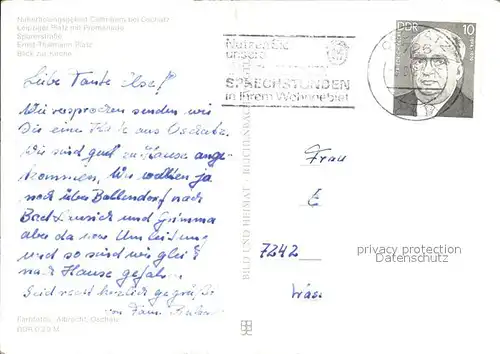 Naherholungsgebiet Collmberg bei Oschatz
Leipziger Platz mit Promenade
Sporerstraße
Ernst-Thälmann-Platz
Blick zur Kirche
DDR 10
Nutzen Sie
unsere
SPRECHSTUNDEN
in Ihrem Wohngebiet
Liebe Tante Ilse!
Wie versprochen senden wir
Dir eine Karte aus Oschatz.
Wir sind gut zu Hause ange-
kommen. Wir wollten ja
noch über Ballendorf nach
Bad Lausick und Grimma
aber da war Umleitung
und so sind wir gleich
nach Hause gefahren
Seid recht herzlich gegrüßt
von Fam.
Frau
E
7242
BILD UND HEIMAT · REICHENBACH
privacy protection
Datenschutz
Farbfotos: Albrecht, Oschatz
DDR 0,20 M